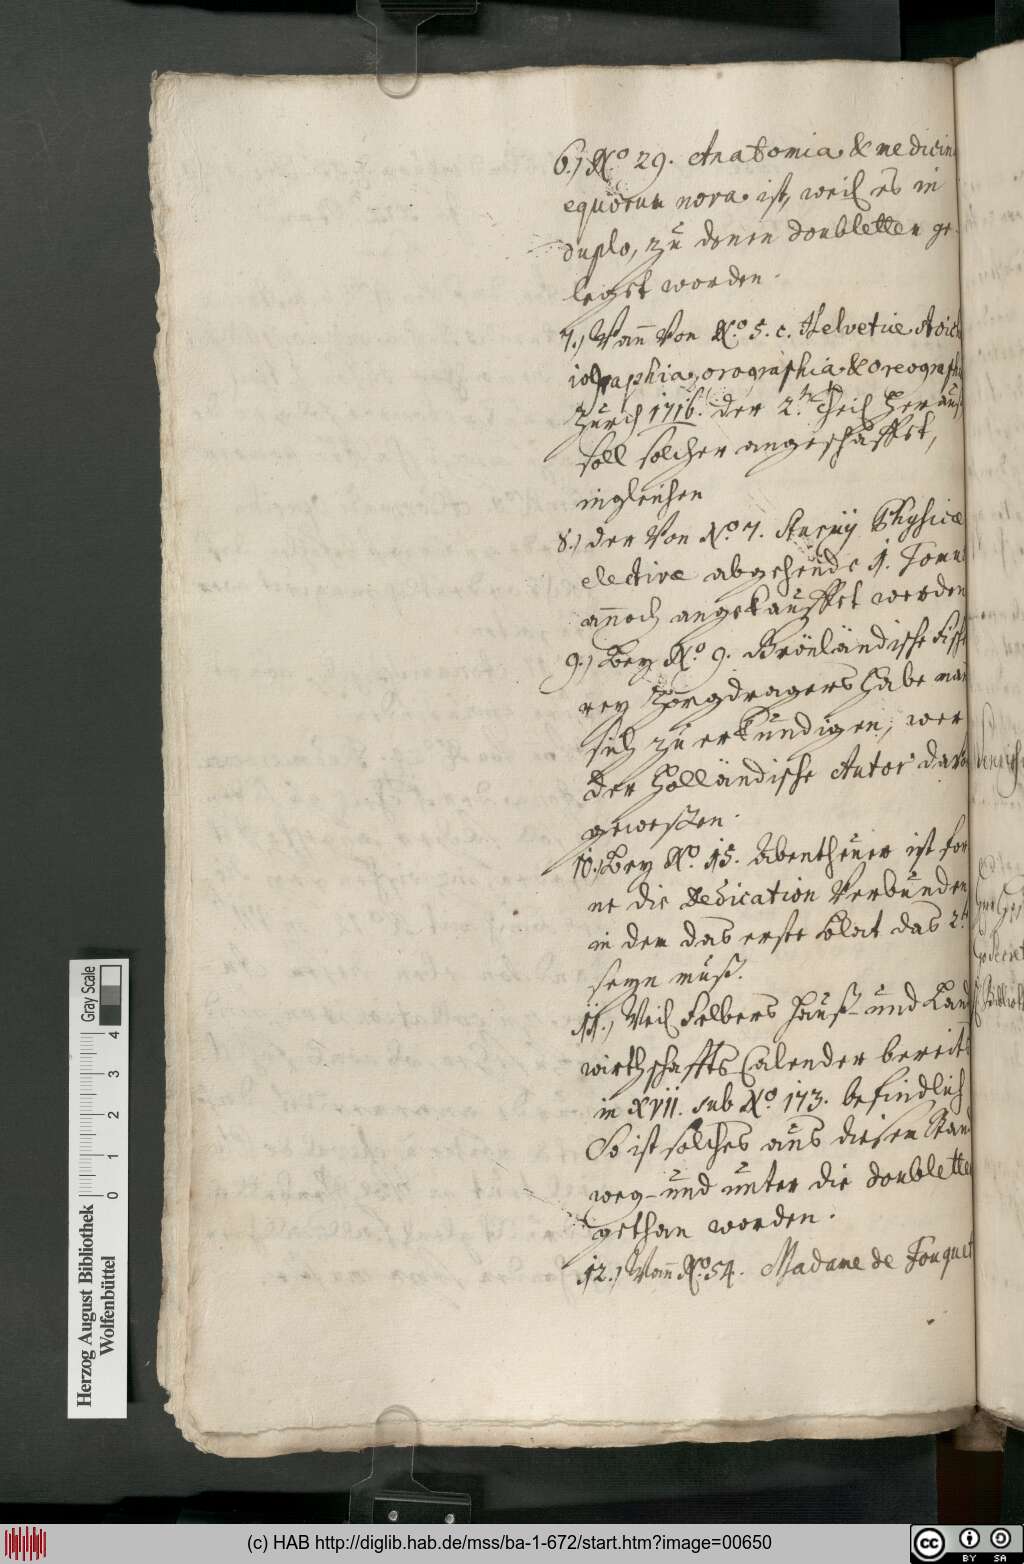 6.) No. 29. Anatomia & medicin
equorum nova ist, weil es in
duplo, zu denen doubletten ge-
leget worden.
7.) Wann von No. 5. c. Helvetiæ
orographia & oreographia
Zürch 1716. der 2.te Theil herauß
soll solcher angeschaffet,
ingleichen
8.) der von No. 7. Physicæ
electivæ abgehende 1. Tomus
annoch angekauffet werden
9.) Bey No. 9. Grönländische Fische
rey Zorgdragers habe man
sich zu erkundigen, wer
der Holländische Autor davon
gewesen.
10.) Bey No. 15. Abentheuer ist for
ne die Dedication verbunden
in dem das erste Blat das 2.te
seyn muß.
11.) Weil Felbers Hauß- und Land
wirthschaffts Calender bereits
in XVII. sub No. 173. befindlich
So ist solches aus diesem Stand
weg- und unter die doublette
gethan worden.
12.) Wann No. 54. Madame de Fouquet
Gray Scale
4
3
2
1
0
Herzog August Bibliothek
Wolfenbüttel
(c) HAB http://diglib.hab.de/mss/ba-1-672/start.htm?image=00650
cc BY SA